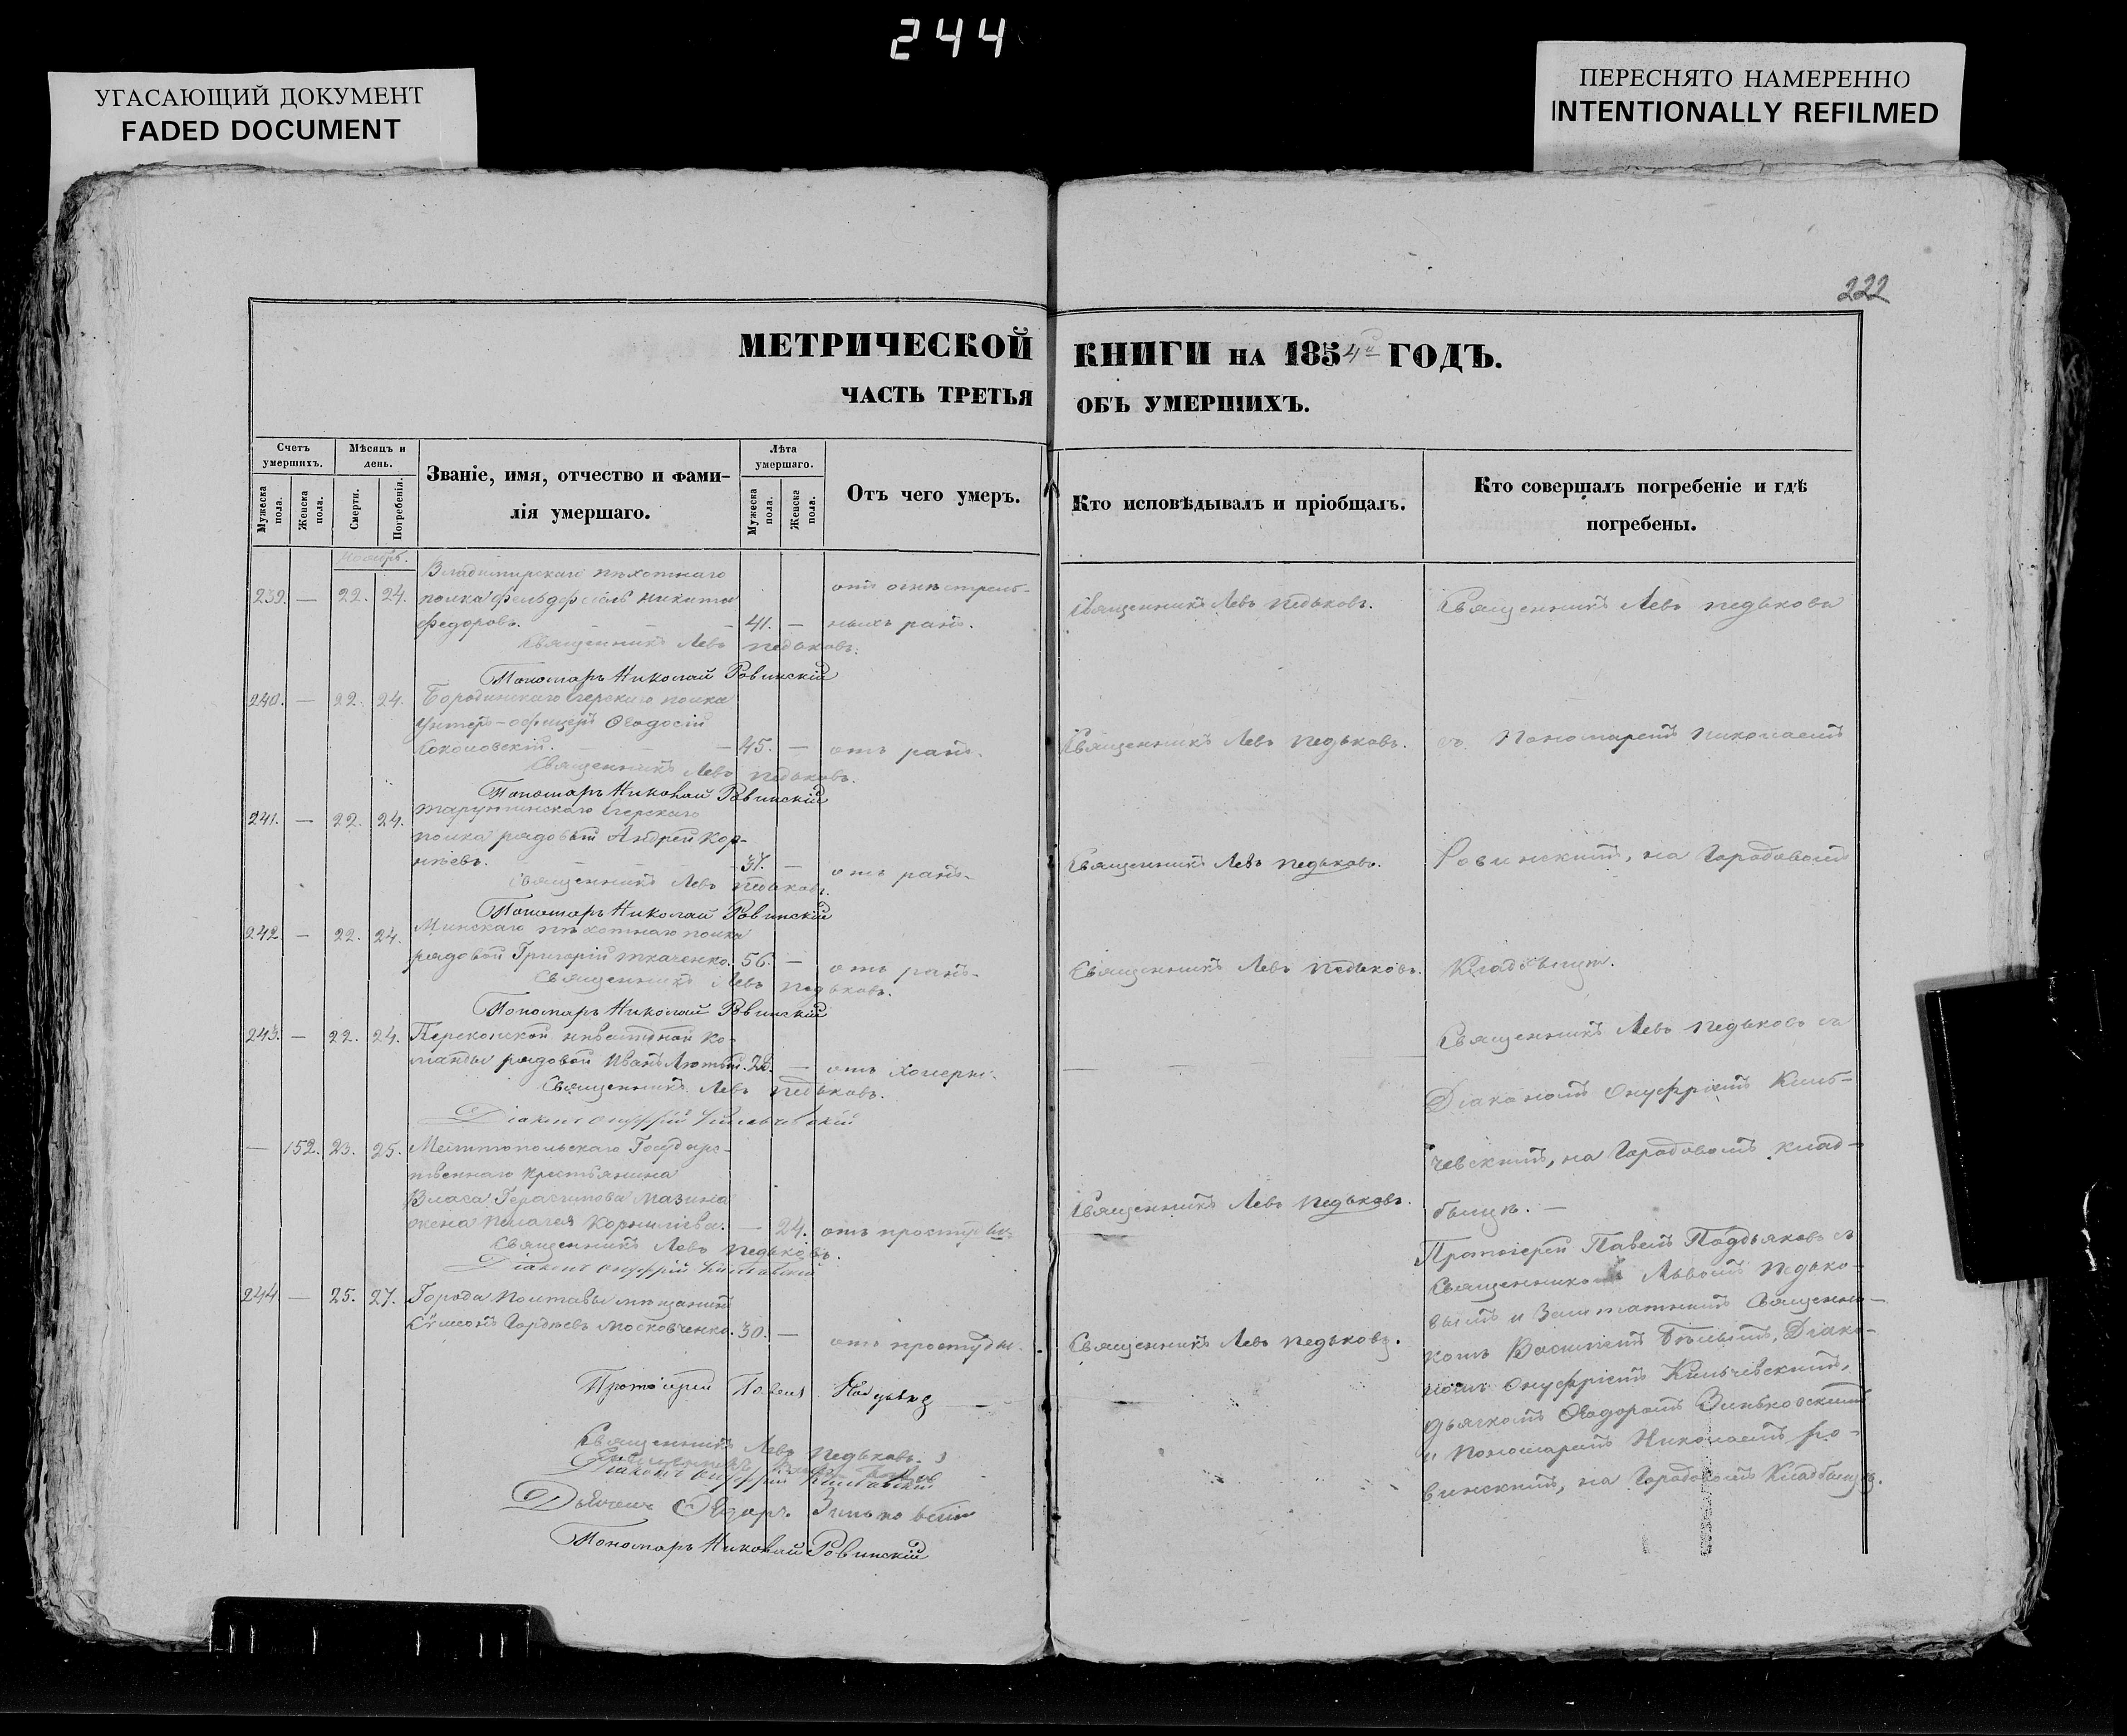 244
УГАСАЮЩИЙ ДОКУМЕНТ
FADED DOCUMENT
ПЕРЕСНЯТО НАМЕРЕННО
INTENTIONALLY REFILMED
222
МЕТРИЧЕСКОЙ КНИГИ НА 1854й ГОДЪ.
ЧАСТЬ ТРЕТЬЯ ОБЪ УМЕРШИХЪ.
Счетъ умершихъ.
Мужеска пола.
Женска пола.
Мѣсяцъ и день.
Смерти.
Погребенія.
Званіе, имя, отчество и фами-
лія умершаго.
Лѣта умершаго.
Мужеска пола.
Женска пола.
Отъ чего умеръ.
Кто исповѣдывалъ и пріобщалъ.
Кто совершалъ погребеніе и гдѣ
погребены.
Ноябрь.
Владимирскаго пѣхотнаго
239. — 22. 24. полка фельдфебель Никита
Федоровъ. 41. —
отъ огнестрель-
ныхъ ранъ.
Священникъ Левъ Педьковъ.
Священникъ Левъ Педьковъ.
Пономарь Николай Ровинскій
240. — 22. 24. Бородинскаго Егерскаго полка
Унтеръ-офицеръ Ѳеодосій
Соколовскій. 45. — отъ ранъ.
Священникъ Левъ Педьковъ.
Священникъ Левъ Педьковъ.
Пономарь Николай Ровинскій
241. — 22. 24. Тарутинскаго Егерскаго
полка рядовый Андрей Кор-
нѣевъ. 37. — отъ ранъ.
Священникъ Левъ Педьковъ.
Священникъ Левъ Педьковъ.
Пономарь Николай Ровинскій
242. — 22. 24. Минскаго пѣхотнаго полка
рядовой Григорій Ткаченко. 56. — отъ ранъ.
Священникъ Левъ Педьковъ.
Священникъ Левъ Педьковъ.
Пономарь Николай Ровинскій
Священникъ Левъ Педьковъ
съ Пономаремъ Николаемъ
Ровинскимъ, на Городовомъ
Кладбищѣ.
243. — 22. 24. Перекопской инвалидной ко-
манды рядовой Иванъ Лютый. — отъ холеры.
Священникъ Левъ Педьковъ.
Діаконъ Онуфрій Кильчевскій
— 152. 23. 25. Мелитопольскаго Государс-
твеннаго крестьянина
Власа Герасимова Мазина
жена Пелагея Корнилієва. — 24. отъ простуды.
Священникъ Левъ Педьковъ.
Священникъ Левъ Педьковъ.
Діаконъ Онуфрій Кильчевскій
Священникъ Левъ Педьковъ съ
Діакономъ Онуфріемъ Киль-
чевскимъ, на Городовомъ клад-
бищѣ. —
244 — 25. 27. Города Полтавы мѣщанинъ
Симеонъ Гордѣевъ Московченко. 30. — отъ простуды.
Священникъ Левъ Педьковъ.
Протоіерей Павелъ Поддьяковъ съ
Священникомъ Львомъ Педько-
вымъ и Заштатнымъ Священни-
комъ Василіемъ Бѣлымъ, Діако-
номъ Онуфріемъ Кильчевскимъ,
дьячкомъ Ѳеодоромъ Зиньковскимъ
и Пономаремъ Николаемъ Ро-
винскимъ, на Городовомъ Кладбищѣ.
Протоіерей Павелъ
Священникъ Левъ Педьковъ.
Діаконъ Онуфрій Кильчевскій
Дьячокъ Ѳедоръ Зиньковскій
Пономарь Николай Ровинскій